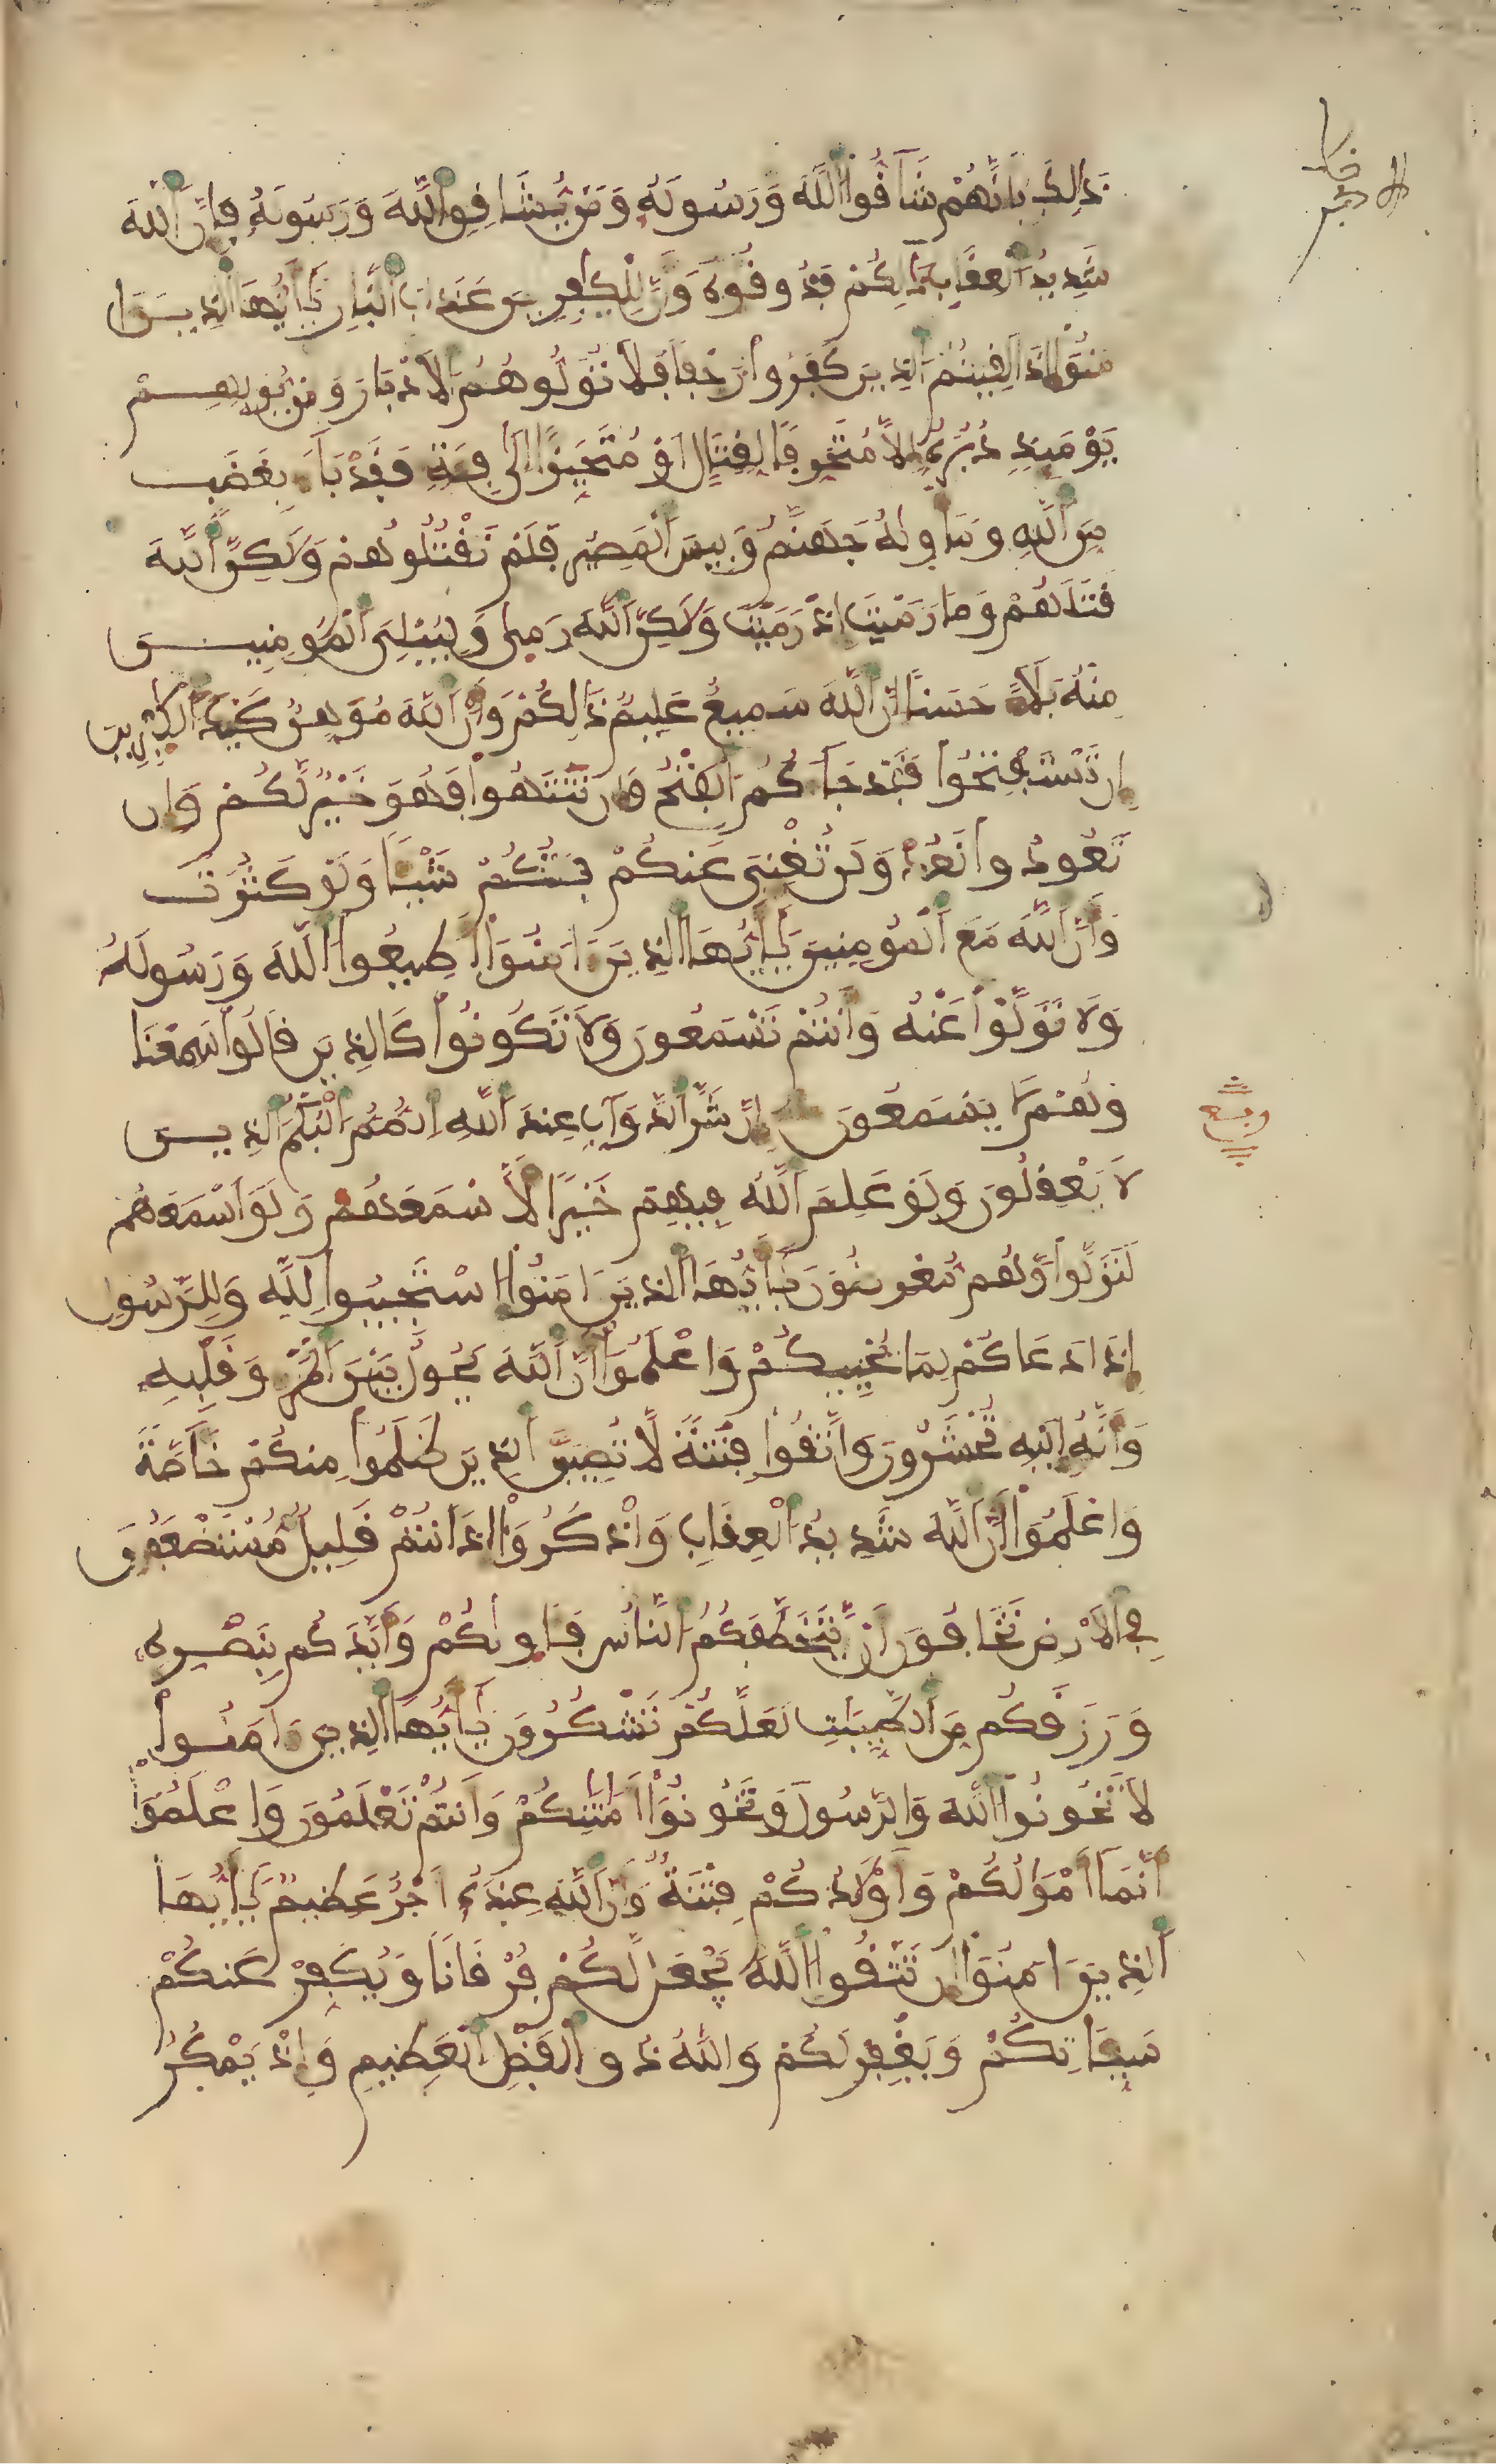 ذَٰلِكَ بِأَنَّهُمْ شَآقُّوا۟ اللَّهَ وَرَسُولَهُ وَمَنْ يُّشَاقِقِ اللَّهَ وَرَسُولَهُ فَإِنَّ اللَّهَ
شَدِيدُ الْعِقَابِ ذَٰلِكُمْ فَذُوقُوهُ وَأَنَّ لِلْكَٰفِرِينَ عَذَابَ النَّارِ يَٰأَيُّهَا الذِينَ ءَا
مَنُوٓا۟ إِذَا لَقِيتُمُ الذِينَ كَفَرُوا۟ زَحْفًا فَلَا تُوَلُّوهُمُ الْأَدْبَارَ وَمَنْ يُّوَلِّهِمْ
يَوْمَئِذٍ دُبُرَهُ إِلَّا مُتَحَرِّفًا لِّقِتَالٍ أَوْ مُتَحَيِّزًا إِلَىٰ فِئَةٍ فَقَدْ بَآءَ بِغَضَبٍ
مِّنَ اللَّهِ وَمَأْوِىٰهُ جَهَنَّمُ وَبِيسَ الْمَصِيرُ فَلَمْ تَقْتُلُوهُمْ وَلَٰكِنَّ اللَّهَ
قَتَلَهُمْ وَمَا رَمَيْتَ إِذْ رَمَيْتَ وَلَٰكِنَّ اللَّهَ رَمِىٰ وَلِيُبْلِىَ الْمُومِنِينَ
مِنْهُ بَلَآءً حَسَنًا إِنَّ اللَّهَ سَمِيعٌ عَلِيمٌ ذَٰلِكُمْ وَأَنَّ اللَّهَ مُوَهِّنٌ كَيْدَ الْكَٰفِرِينَ
إِن تَسْتَفْتِحُوا۟ فَقَدْ جَآءَكُمُ الْفَتْحُ وَإِن تَنتَهُوا۟ فَهُوَ خَيْرٌ لَّكُمْ وَإِن
تَعُودُوا۟ نَعُدْ وَلَن تُغْنِىَ عَنكُمْ فِئَتُكُمْ شَيْـًٔا وَلَوْ كَثُرَتْ
وَأَنَّ اللَّهَ مَعَ الْمُومِنِينَ يَٰأَيُّهَا الذِينَ ءَامَنُوٓا۟ أَطِيعُوا۟ اللَّهَ وَرَسُولَهُ
وَلَا تَوَلَّوْا۟ عَنْهُ وَأَنتُمْ تَسْمَعُونَ وَلَا تَكُونُوا۟ كَالذِينَ قَالُوا۟ سَمِعْنَا
وَهُمْ لَا يَسْمَعُونَ إِنَّ شَرَّ الدَّوَآبِّ عِندَ اللَّهِ الصُّمُّ الْبُكْمُ الذِينَ
لَا يَعْقِلُونَ وَلَوْ عَلِمَ اللَّهُ فِيهِمْ خَيْرًا لَّأَسْمَعَهُمْ وَلَوْ أَسْمَعَهُمْ
لَتَوَلَّوا۟ وَّهُم مُّعْرِضُونَ يَٰأَيُّهَا الذِينَ ءَامَنُوا۟ اسْتَجِيبُوا۟ لِلَّهِ وَلِلرَّسُولِ
إِذَا دَعَاكُمْ لِمَا يُحْيِيكُمْ وَاعْلَمُوٓا۟ أَنَّ اللَّهَ يَحُولُ بَيْنَ الْمَرْءِ وَقَلْبِهِ
وَأَنَّهُ إِلَيْهِ تُحْشَرُونَ وَاتَّقُوا۟ فِتْنَةً لَّا تُصِيبَنَّ الذِينَ ظَلَمُوا۟ مِنكُمْ خَآصَّةً
وَاعْلَمُوٓا۟ أَنَّ اللَّهَ شَدِيدُ الْعِقَابِ وَاذْكُرُوٓا۟ إِذْ أَنتُمْ قَلِيلٌ مُّسْتَضْعَفُونَ
فِى الْأَرْضِ تَخَافُونَ أَن يَّتَخَطَّفَكُمُ النَّاسُ فَـَٔاوِىٰكُمْ وَأَيَّدَكُم بِنَصْرِهِ
وَرَزَقَكُم مِّنَ الطَّيِّبَٰتِ لَعَلَّكُمْ تَشْكُرُونَ يَٰأَيُّهَا الذِينَ ءَامَنُوا۟
لَا تَخُونُوا۟ اللَّهَ وَالرَّسُولَ وَتَخُونُوٓا۟ أَمَٰنَٰتِكُمْ وَأَنتُمْ تَعْلَمُونَ وَاعْلَمُوٓا۟
أَنَّمَآ أَمْوَٰلُكُمْ وَأَوْلَٰدُكُمْ فِتْنَةٌ وَأَنَّ اللَّهَ عِندَهُ أَجْرٌ عَظِيمٌ يَٰأَيُّهَا
الذِينَ ءَامَنُوٓا۟ إِن تَتَّقُوا۟ اللَّهَ يَجْعَل لَّكُمْ فُرْقَانًا وَيُكَفِّرْ عَنكُمْ
سَيِّـَٔاتِكُمْ وَيَغْفِرْ لَكُمْ وَاللَّهُ ذُو الْفَضْلِ الْعَظِيمِ وَإِذْ يَمْكُرُ
ربع